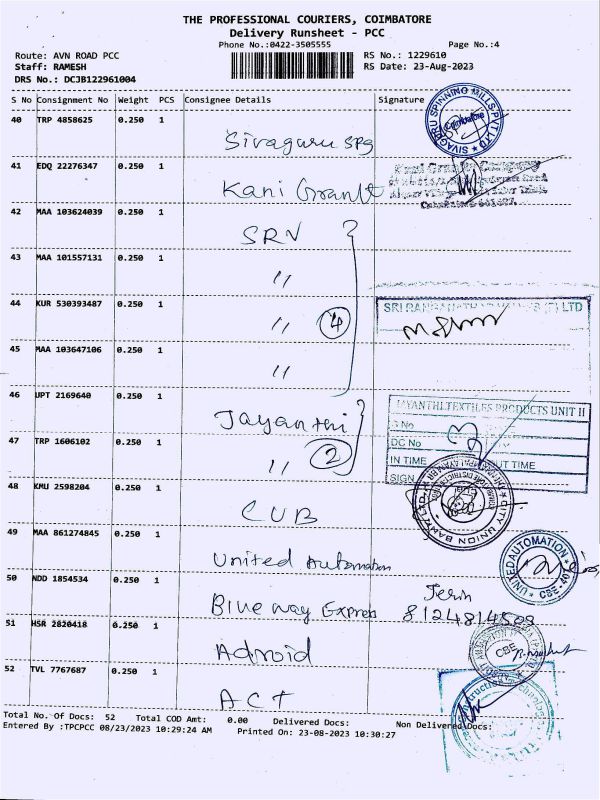 THE PROFESSIONAL COURIERS, COIMBATORE
Delivery Runsheet - PCC
Phone No.:0422-3505555 Page No.:4
Route: AVN ROAD PCC RS No.: 1229610
Staff: RAMESH RS Date: 23-Aug-2023
DRS No.: DCJB122961004
S No Consignment No Weight PCS Consignee Details Signature
40 TRP 4858625 0.250 1
Sivaguru SPG
SIVAGURU SPINNING MILLS PVT LTD
Coimbatore
41 EDQ 22276347 0.250 1
Kani Granlt
Kani Granite Company
42 MAA 103624039 0.250 1
SRV
43 MAA 101557131 0.250 1
"
44 KUR 530393487 0.250 1
" 4
45 MAA 103647106 0.250 1
"
46 UPT 2169640 0.250 1
Jayanthi
JAYANTHI TEXTILES PRODUCTS UNIT II
DC No
IN TIME OUT TIME
SIGN
47 TRP 1606102 0.250 1
" 2
48 KMU 2598204 0.250 1
CUB
CITY UNION BANK LTD
49 MAA 861274845 0.250 1
United Automation
50 NDD 1854534 0.250 1
Blue way Expres
Jerin
8124814509
51 HSR 2820418 0.250 1
Adroid
CBE
52 TVL 7767687 0.250 1
ACT
Total No. Of Docs: 52 Total COD Amt: 0.00 Delivered Docs: Non Delivered Docs:
Entered By :TPCPCC 08/23/2023 10:29:24 AM Printed On: 23-08-2023 10:30:27